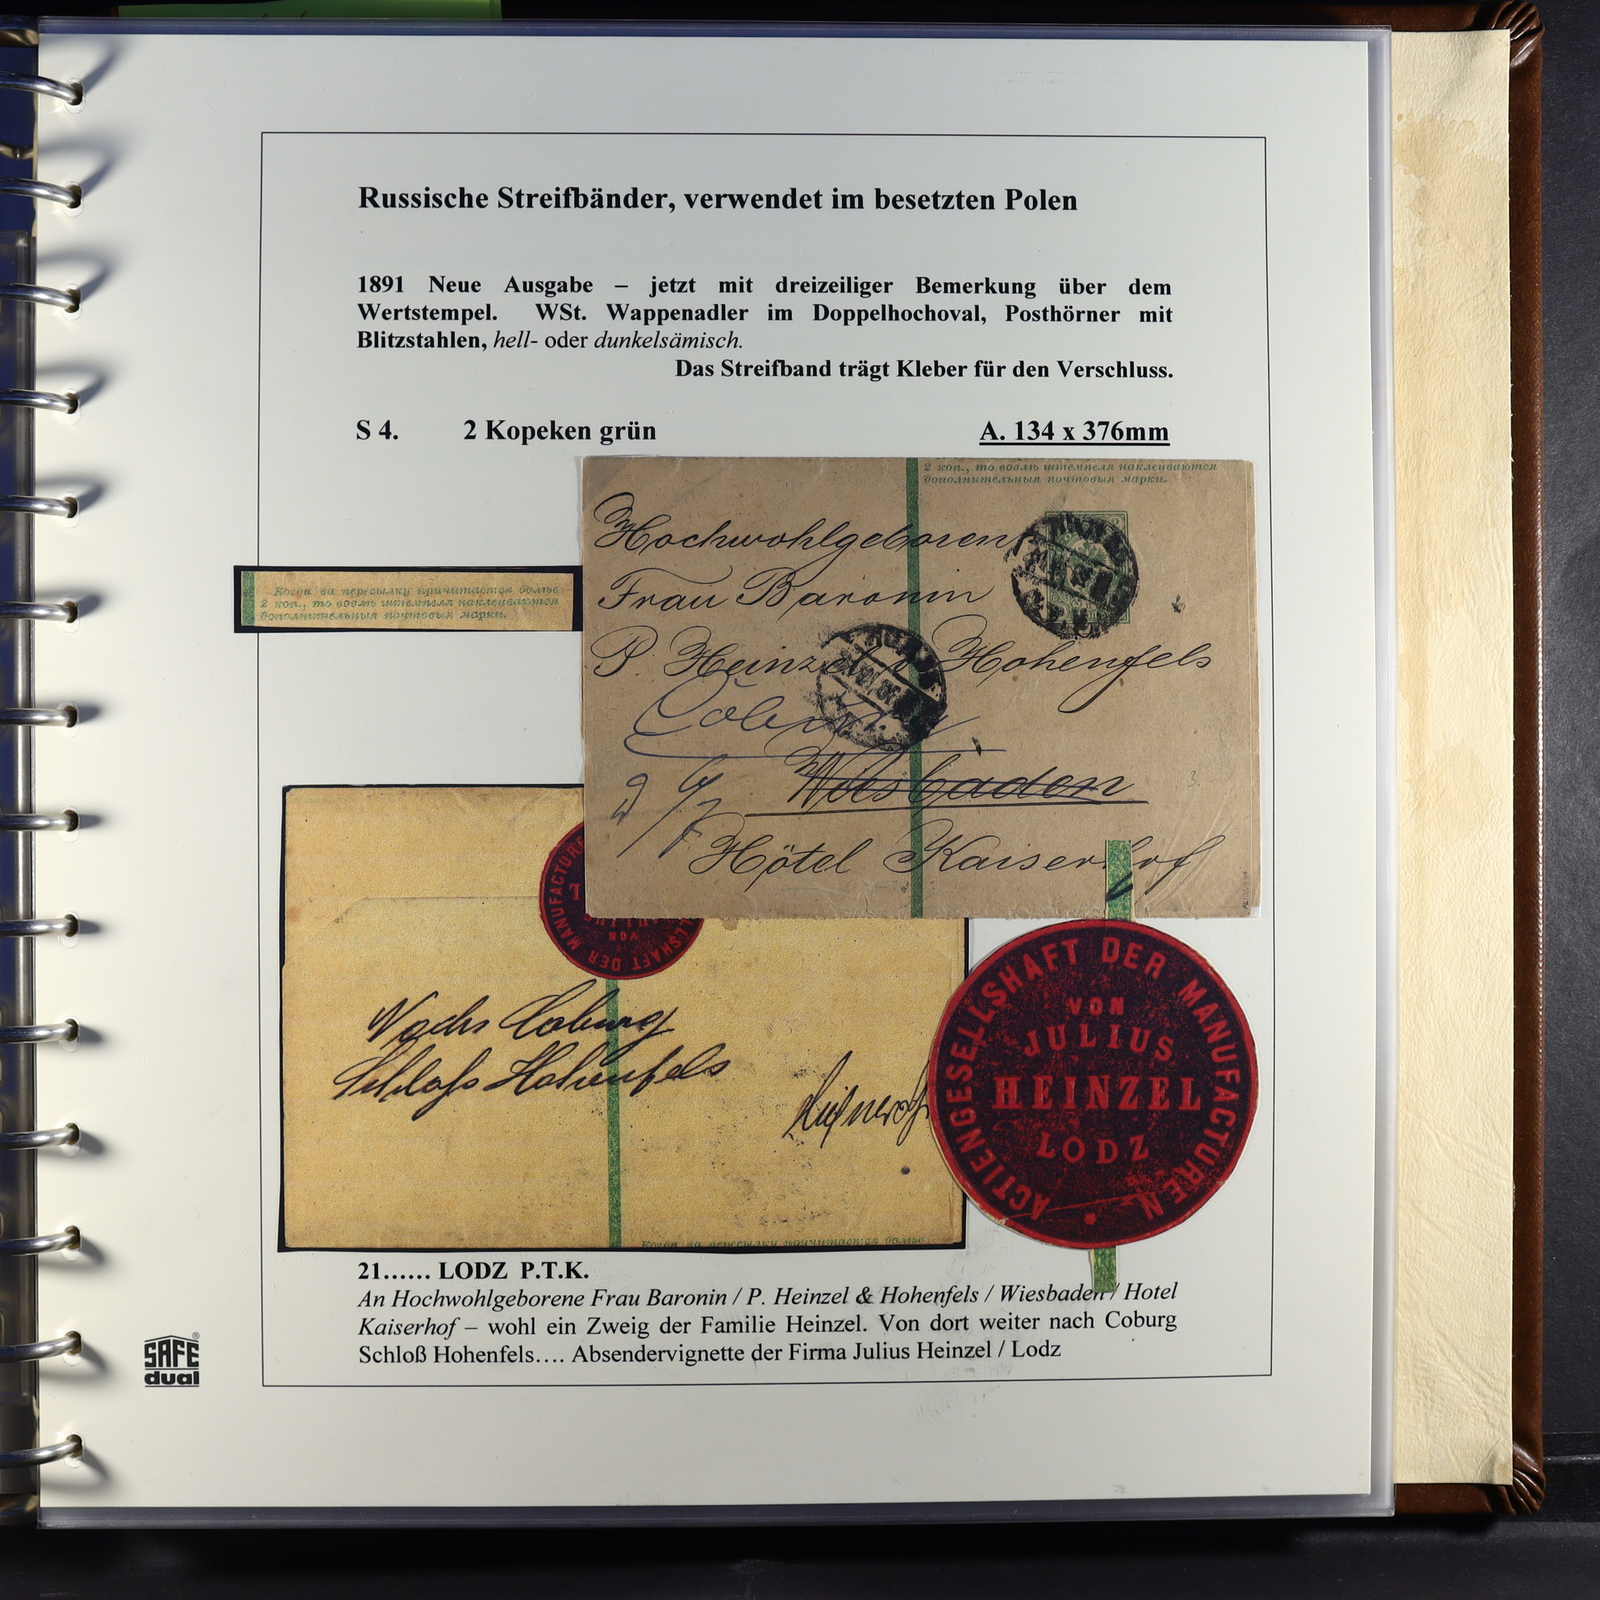 Russische Streifbänder, verwendet im besetzten Polen
1891 Neue Ausgabe – jetzt mit dreizeiliger Bemerkung über dem
Wertstempel. WSt. Wappenadler im Doppelhochoval, Posthörner mit
Blitzstahlen, hell- oder dunkelsämisch.
Das Streifband trägt Kleber für den Verschluss.
S 4. 2 Kopeken grün A. 134 x 376mm
2 коп., то возлѣ штемпеля наклеиваются
дополнительныя почтовыя марки.
Hochwohlgeboren
Frau Baronin
P. Heinzel v Hohenfels
Coburg
Wiesbaden
Hôtel Kaiserhof
3.
Когда за пересылку причитается болѣе
2 коп., то возлѣ штемпеля наклеиваются
дополнительныя почтовыя марки.
Nachs Coburg
Schloss Hohenfels
Когда за пересылку причитается болѣе
ACTIENGESELLSHAFT DER MANUFACTUREN
VON
JULIUS
HEINZEL
LODZ
21…… LODZ P.T.K.
An Hochwohlgeborene Frau Baronin / P. Heinzel & Hohenfels / Wiesbaden / Hotel
Kaiserhof – wohl ein Zweig der Familie Heinzel. Von dort weiter nach Coburg
Schloß Hohenfels…. Absendervignette der Firma Julius Heinzel / Lodz
SAFE®
dual